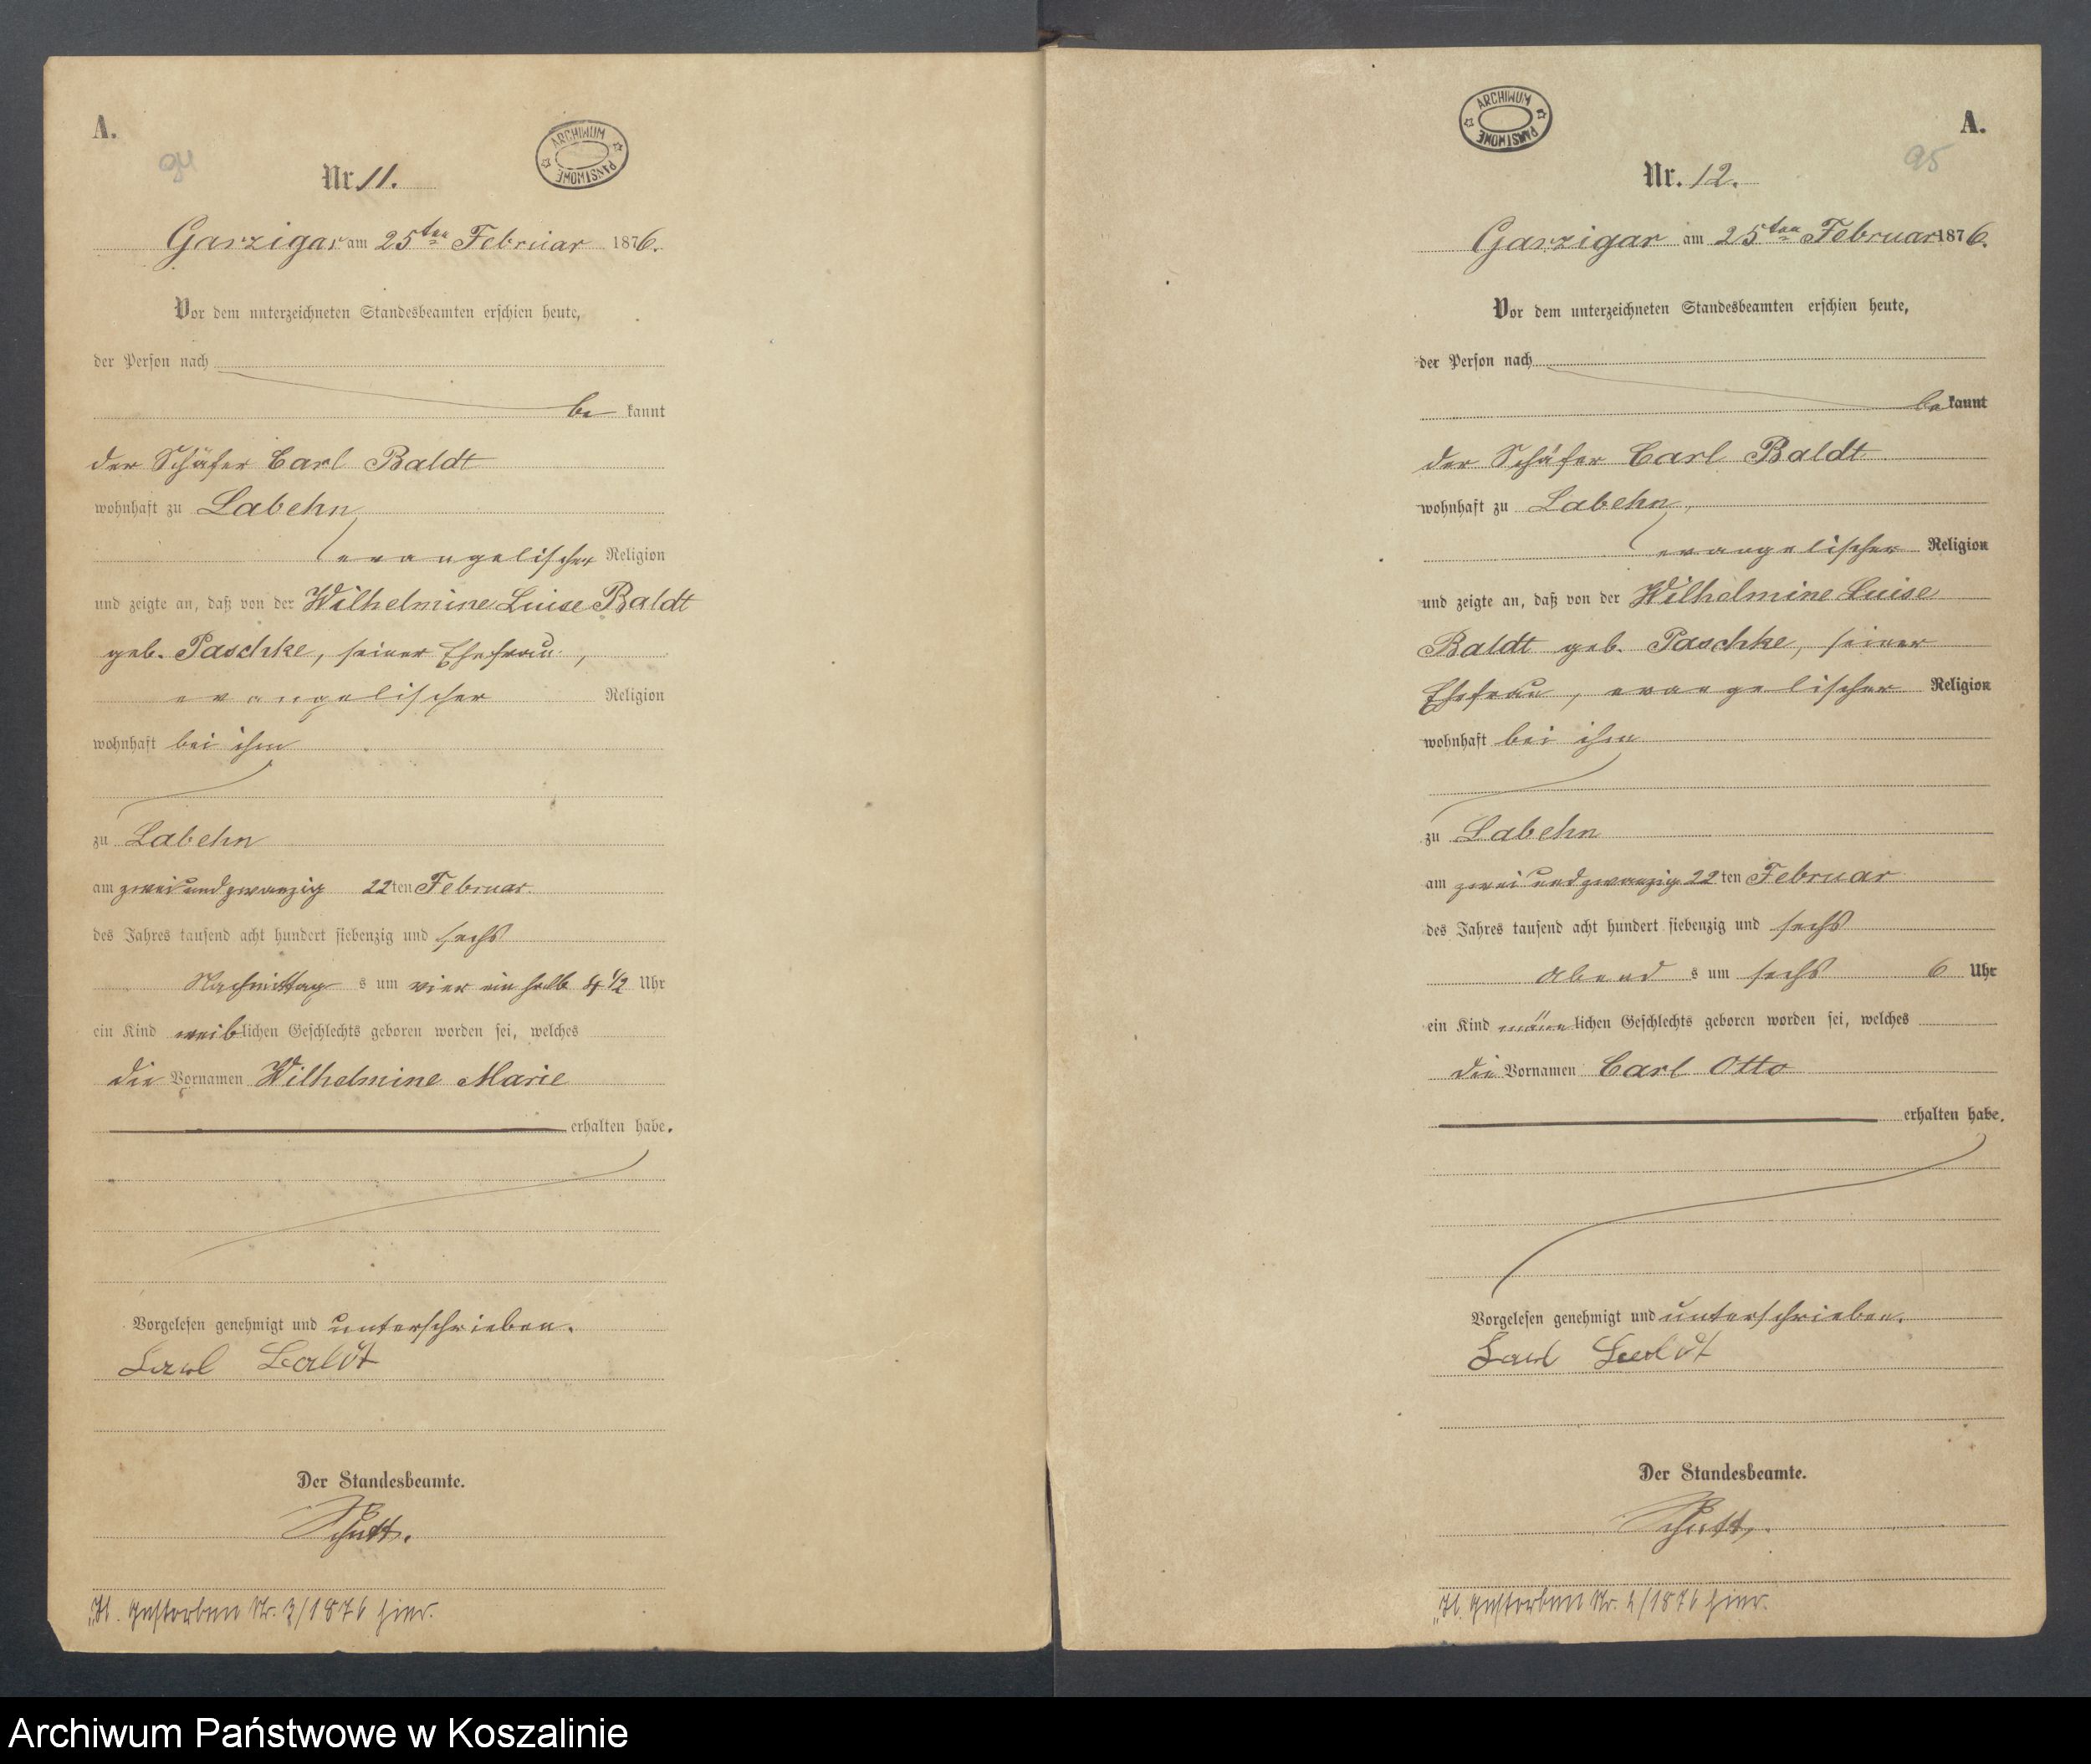 A.
94
Nr. 11.
ARCHIWUM PAŃSTWOWE
Garzigar am 25ten Februar 1876.
Vor dem unterzeichneten Standesbeamten erschien heute,
der Person nach
be kannt
der Schäfer Carl Baldt
wohnhaft zu Labehn
evangelischer Religion
und zeigte an, daß von der Wilhelmine Luise Baldt
geb. Paschke, seiner Ehefrau,
evangelischer Religion
wohnhaft bei ihm
zu Labehn
am zwei und zwanzig 22ten Februar
des Jahres tausend acht hundert siebenzig und sechs
Nachmittag s um vier ein halb 4 1/2 Uhr
ein Kind weiblichen Geschlechts geboren worden sei, welches
die Vornamen Wilhelmine Marie
erhalten habe.
Vorgelesen genehmigt und unterschrieben.
Carl Baldt
Der Standesbeamte.
Schutt.
Gestorben Nr. 3/1876 hier.
A.
95
Nr. 12.
ARCHIWUM PAŃSTWOWE
Garzigar am 25ten Februar 1876.
Vor dem unterzeichneten Standesbeamten erschien heute,
der Person nach
be kannt
der Schäfer Carl Baldt
wohnhaft zu Labehn,
evangelischer Religion
und zeigte an, daß von der Wilhelmine Luise
Baldt geb. Paschke, seiner
Ehefrau, evangelischer Religion
wohnhaft bei ihm
zu Labehn
am zwei und zwanzig 22ten Februar
des Jahres tausend acht hundert siebenzig und sechs
Abend s um sechs 6 Uhr
ein Kind männlichen Geschlechts geboren worden sei, welches
die Vornamen Carl Otto
erhalten habe.
Vorgelesen genehmigt und unterschrieben.
Carl Baldt
Der Standesbeamte.
Schutt.
Gestorben Nr. /1876 hier.
Archiwum Państwowe w Koszalinie